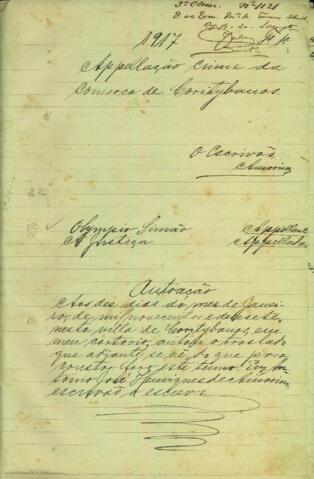 3ª Classe. Nº 1121
1917
Appellação crime da
Comarca de Coritybanos.
O Escrivão
Amorim
22
Olympio Simão Appellante
A Justiça Appellada.
Autoação
Aos dez dias do mez de Janei-
ro, de mil novecentos e dezesete,
nesta villa de Coritybanos, em
meu cartorio, autoei o traslado
que adiante se vê, do que para
constar faço este termo. Eu, An-
tonio José Henriques de Amorim
escrivão, o escrevi